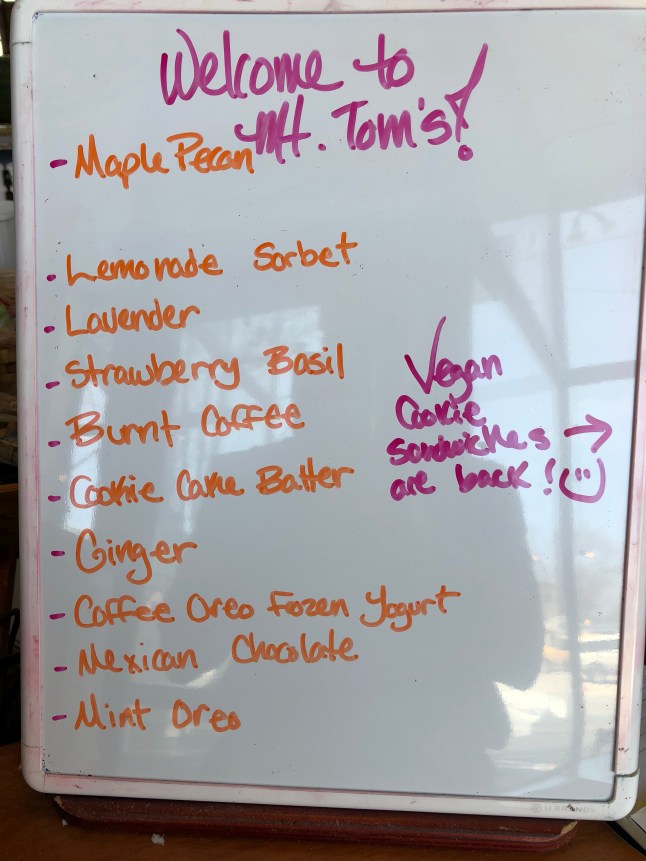 Welcome to
Mt. Tom's!
- Maple Pecan
- Lemonade Sorbet
- Lavender
- Strawberry Basil
- Burnt Coffee
- Cookie Cake Batter
- Ginger
- Coffee Oreo Frozen Yogurt
- Mexican Chocolate
- Mint Oreo
Vegan
Cookie
sandwiches →
are back! :)